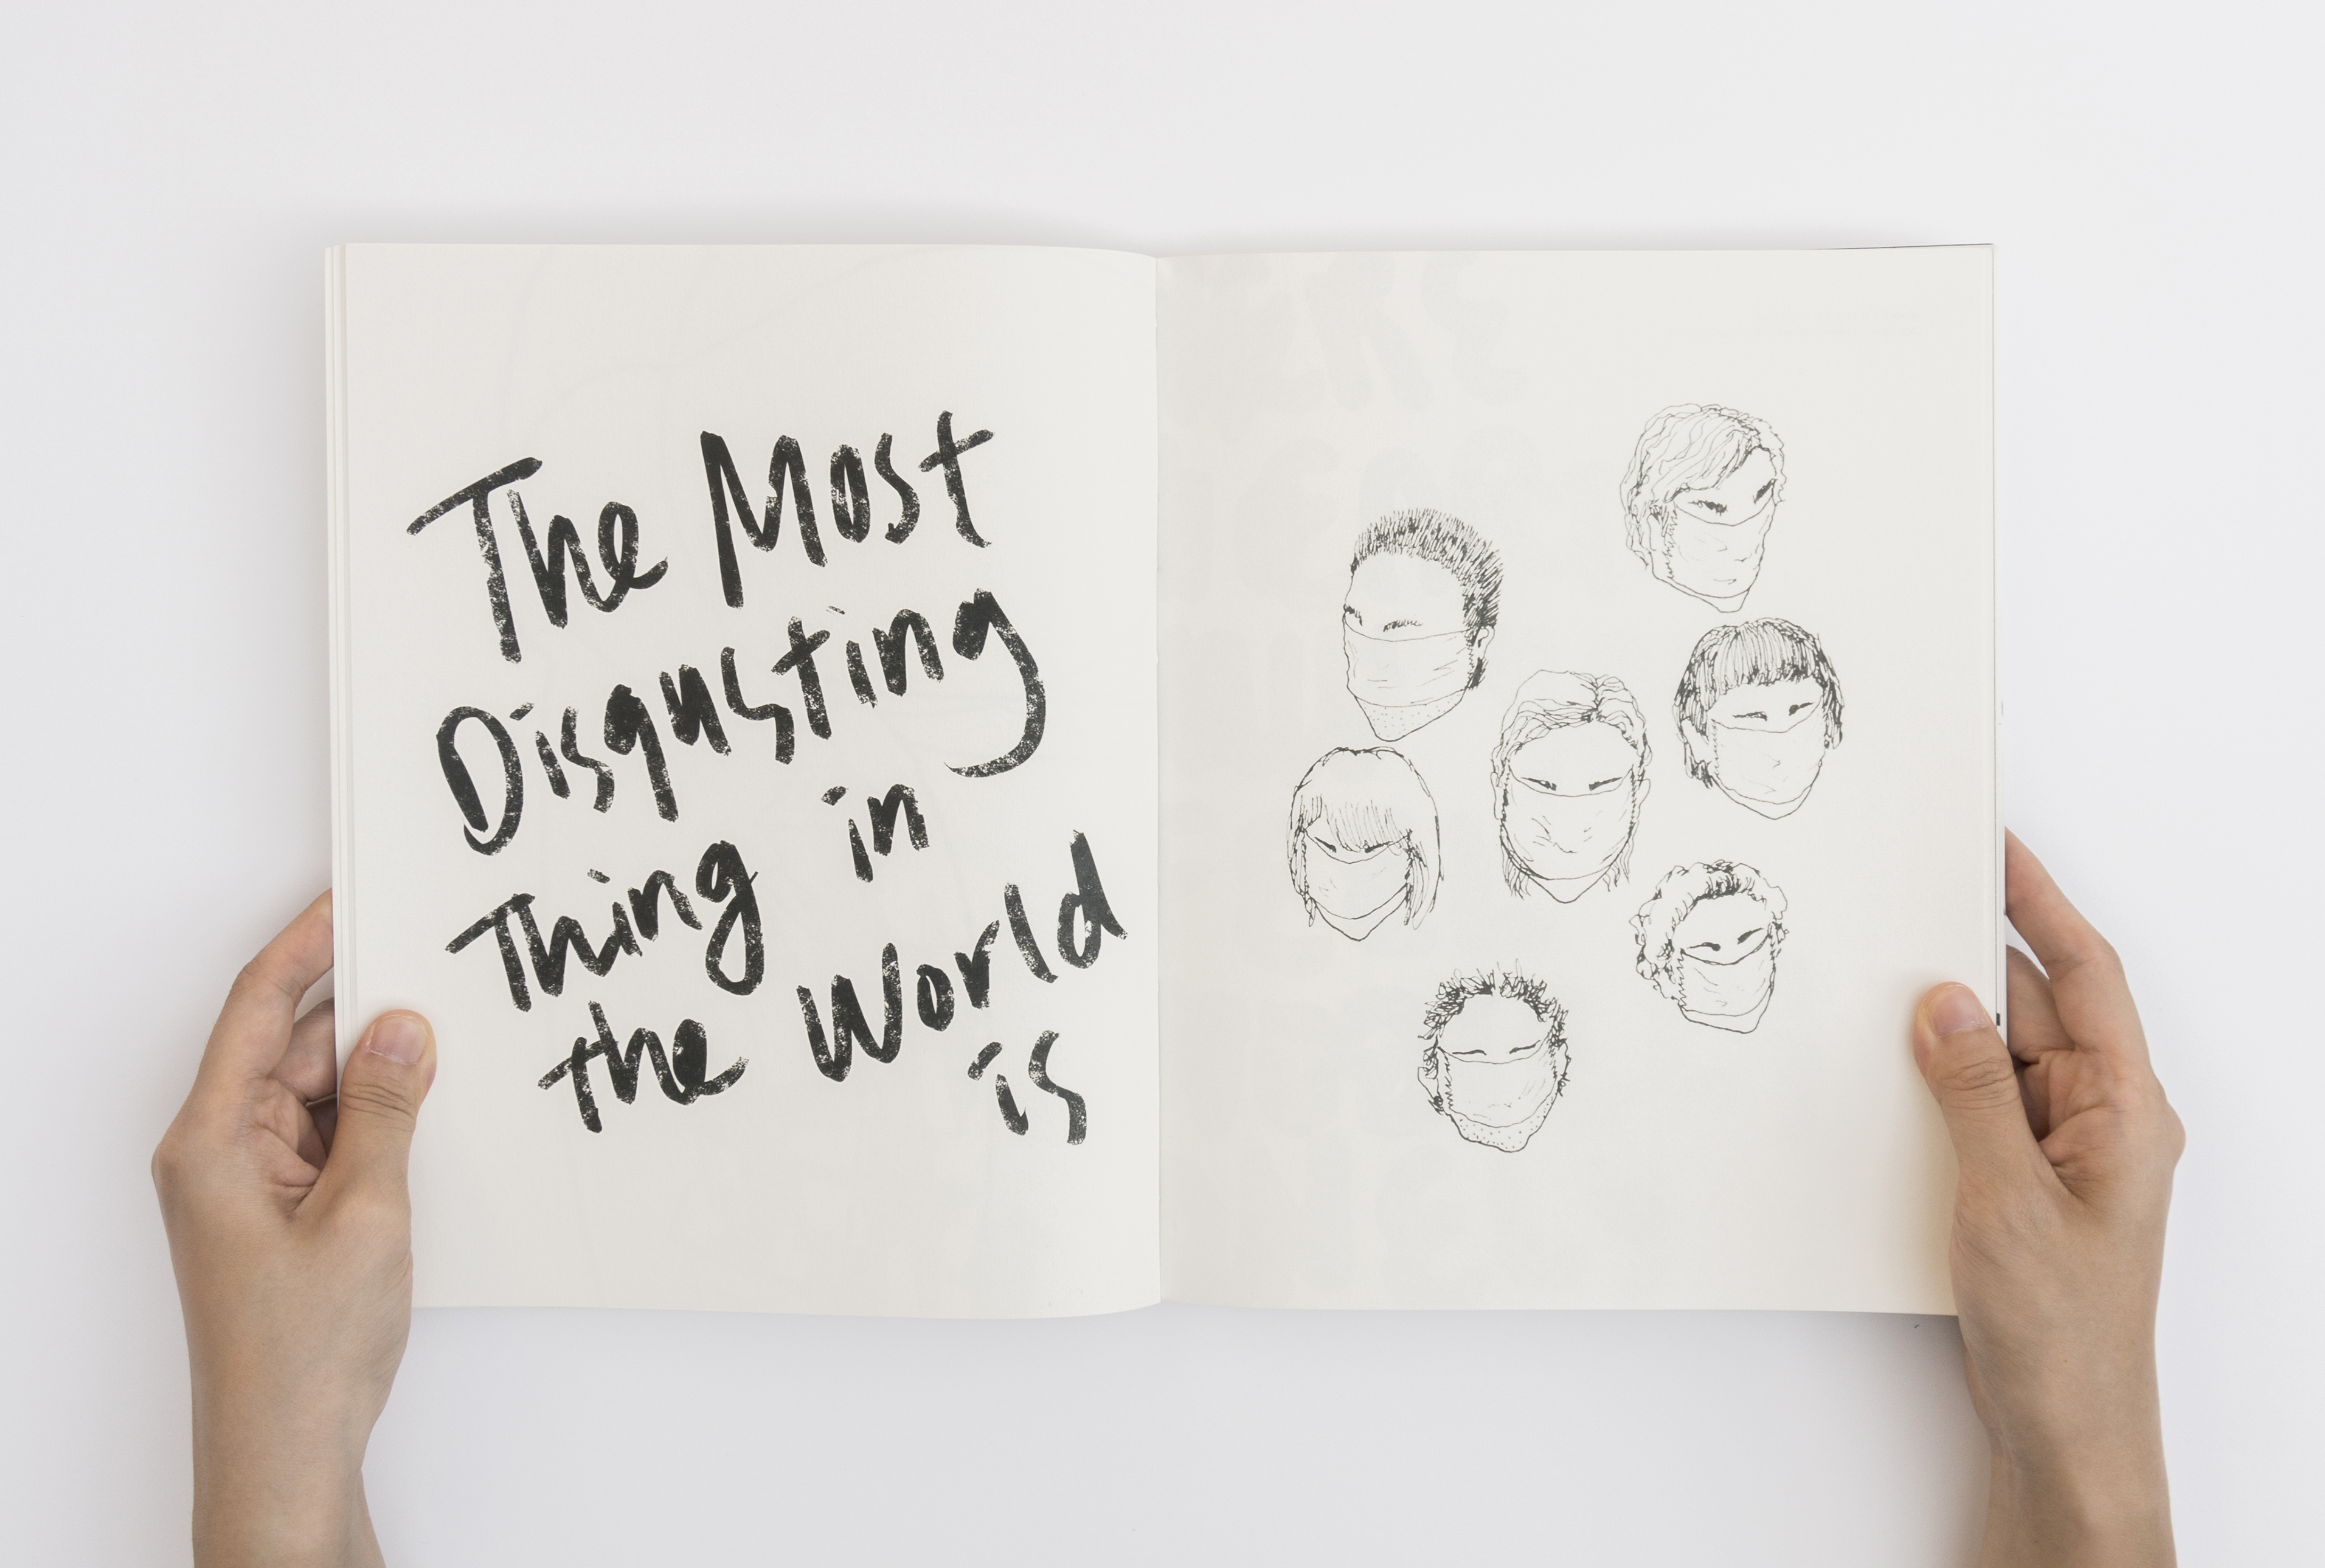 The Most
Disgusting
Thing in
the World
is